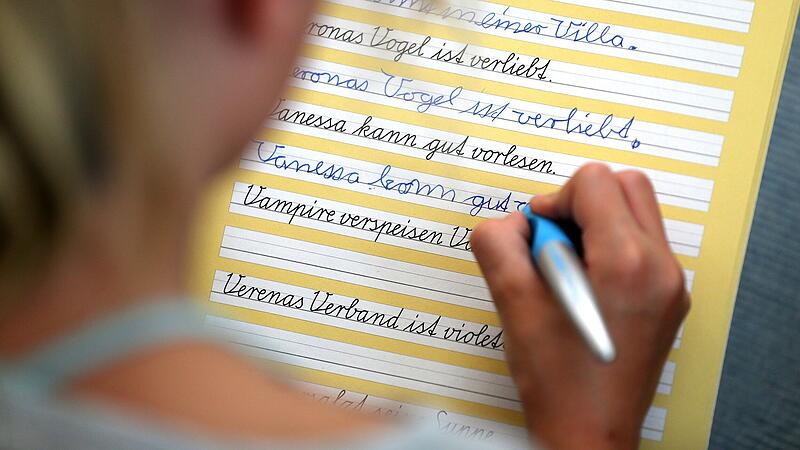 in einer Villa.
Veronas Vogel ist verliebt.
Veronas Vogel ist verliebt.
Vanessa kann gut vorlesen.
Vanessa kann gut
Vampire verspeisen
Verenas Verband ist violett